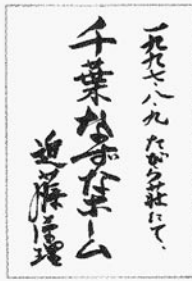 一九九七・八・九 たがら荘にて、
千葉なずなホーム
近藤